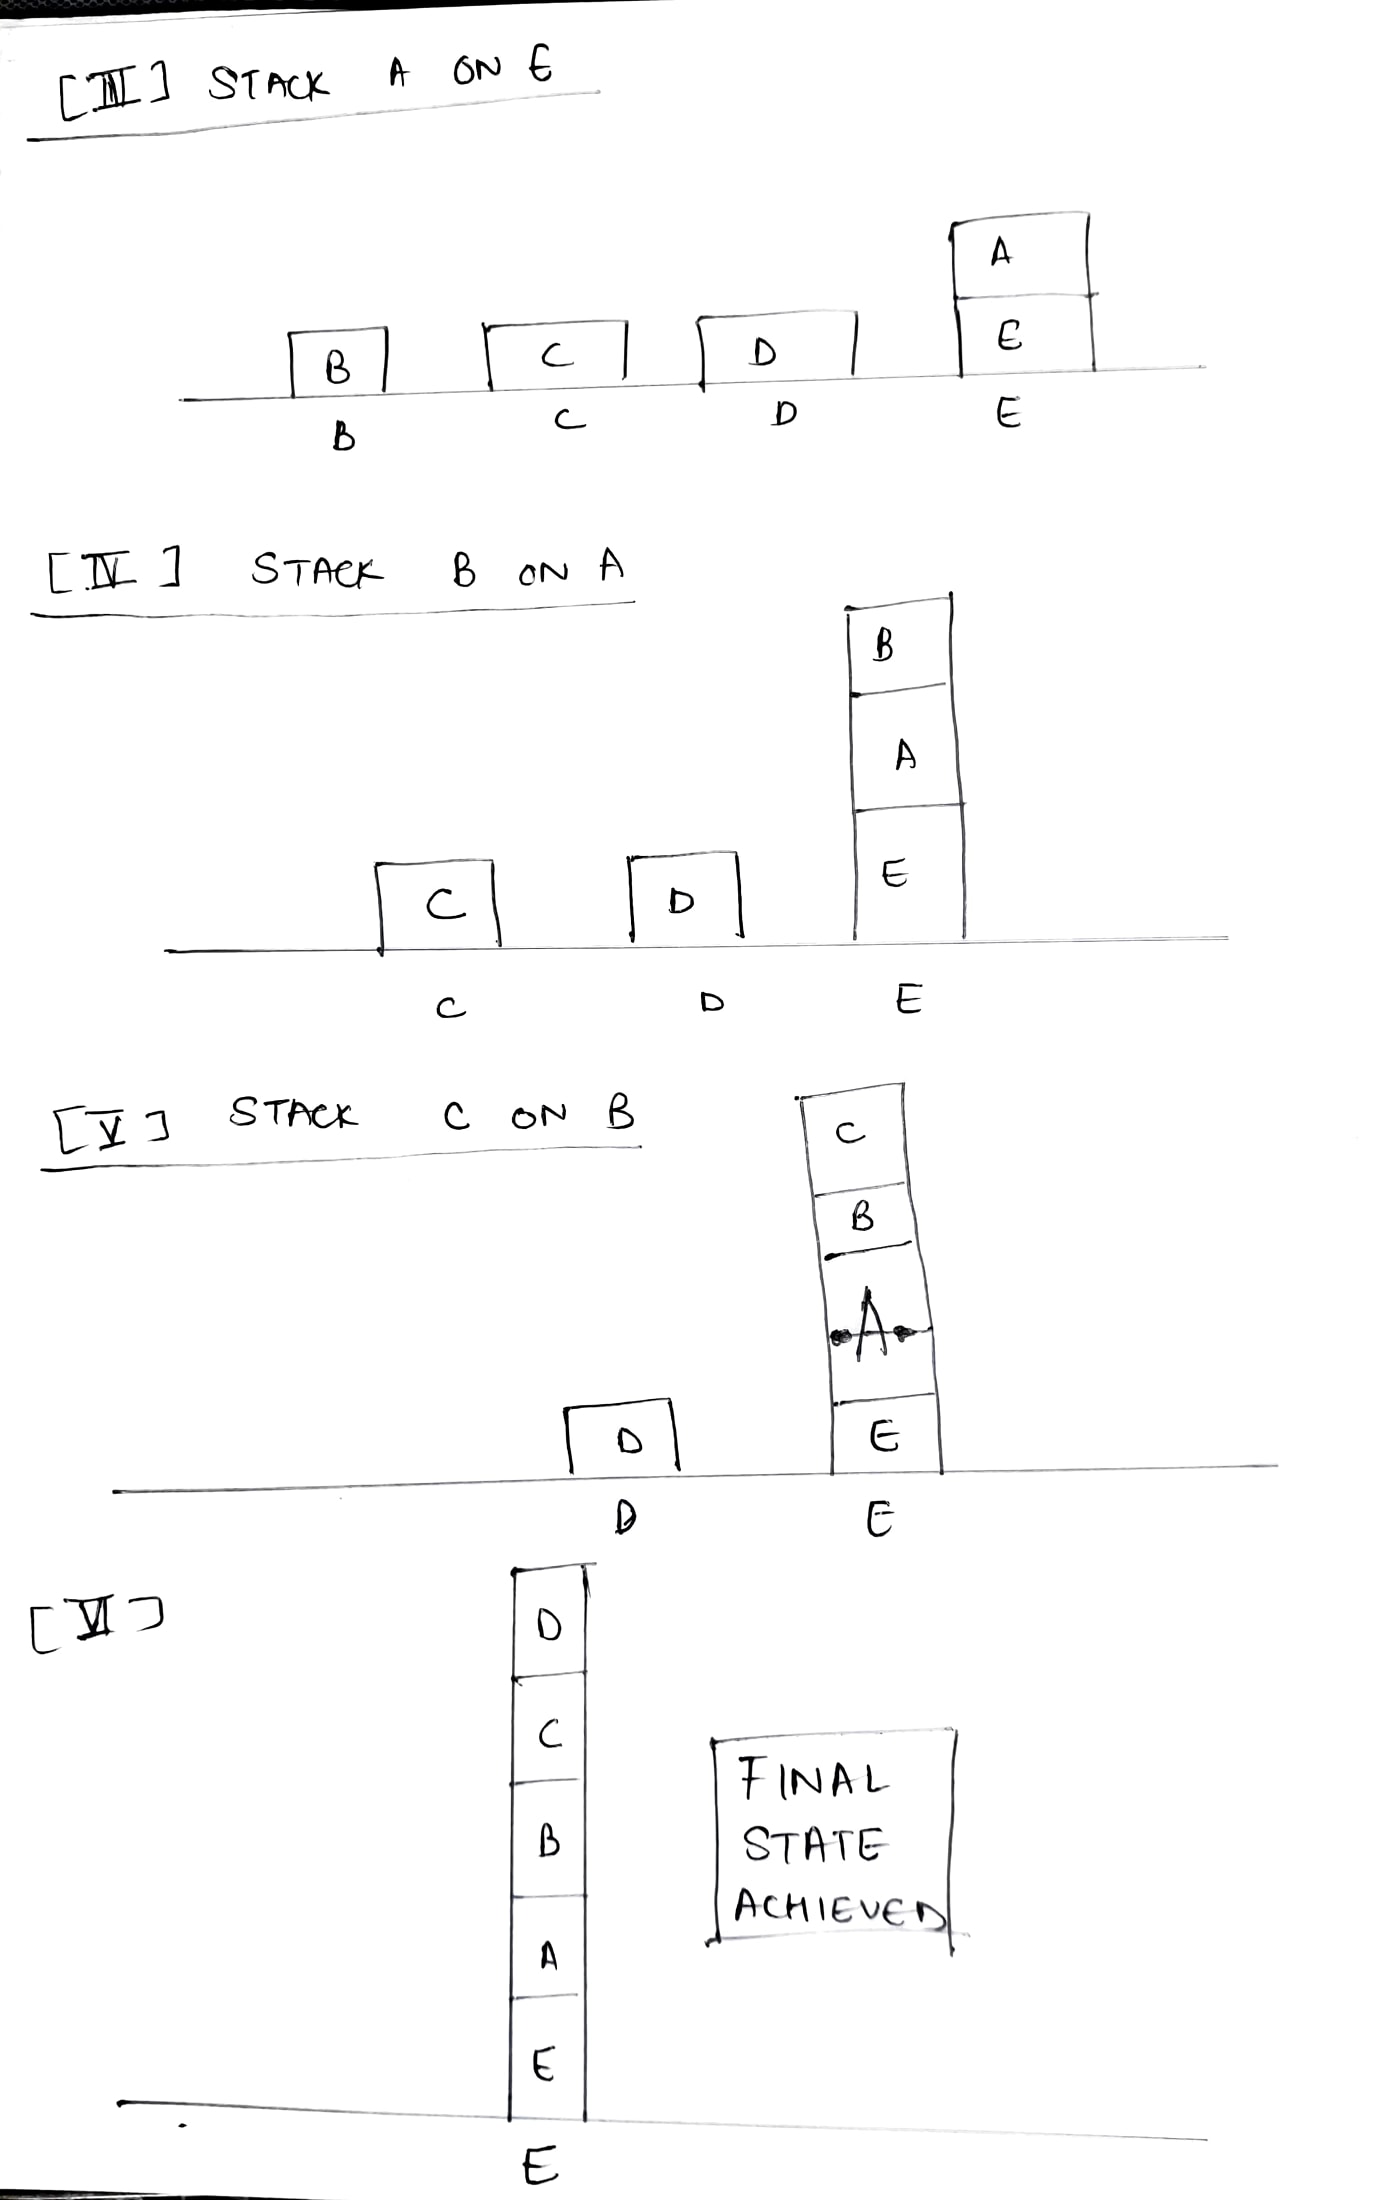 [III] STACK A ON E
A
B C D E
B C D E
[IV] STACK B ON A
B
A
C D E
C D E
[V] STACK C ON B
C
B
A
D E
D E
[VI]
D
C
B
A
E
E
FINAL
STATE
ACHIEVED